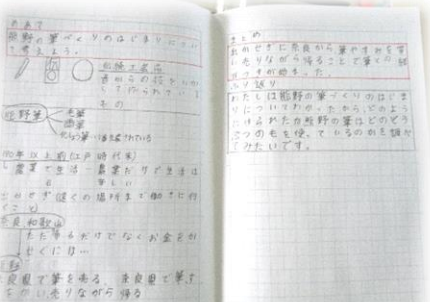 めあて
熊野の筆づくりのはじまりについ
て考えよう。
伝統工芸品
昔からの技
して作られてい
もの
熊野筆
毛筆
画筆
けしょう筆
年以上前(江戸時代末)
農業で生活→農業だけで生活は
苦しい
かせぎ(遠くの場所まで働きに行
くこと)
奈良、和歌山
ただ帰るだけでなくお金をか
せぐには…
良県で筆を売る 奈良県で筆、す
売りながら帰る
まとめ
出かせぎに奈良から筆やすみを
売りながら帰ることで筆
が始まった。
ふり返り
わたしは熊野の筆づくりのはじま
りについてわかったから、どのよう
熊野の筆はどのどう
ぶつの毛を使っているのかを調べ
てみたいです。